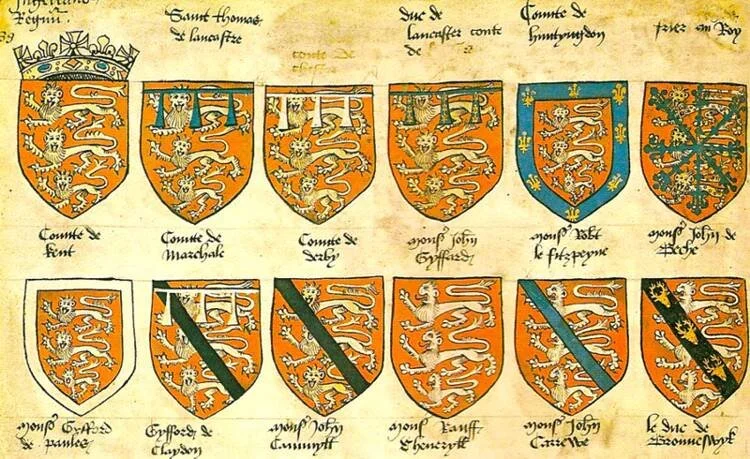 Regnũ
Saint thomas
de lancastre
duc de
lancaster conte
de
Comte de
huntyngdon
frier au Roy
conte de
Comte de
kent
Comte de
Marchale
Comte de
derby
mons' John
Gyffard
mons' Robt
le fitzpayne
mons' John de
Beche
mons'
de paules
Gyffard de
Claydon
mons' John
mons' Rauff
mons' John
Carrewe
le duc de
Bronneswyk